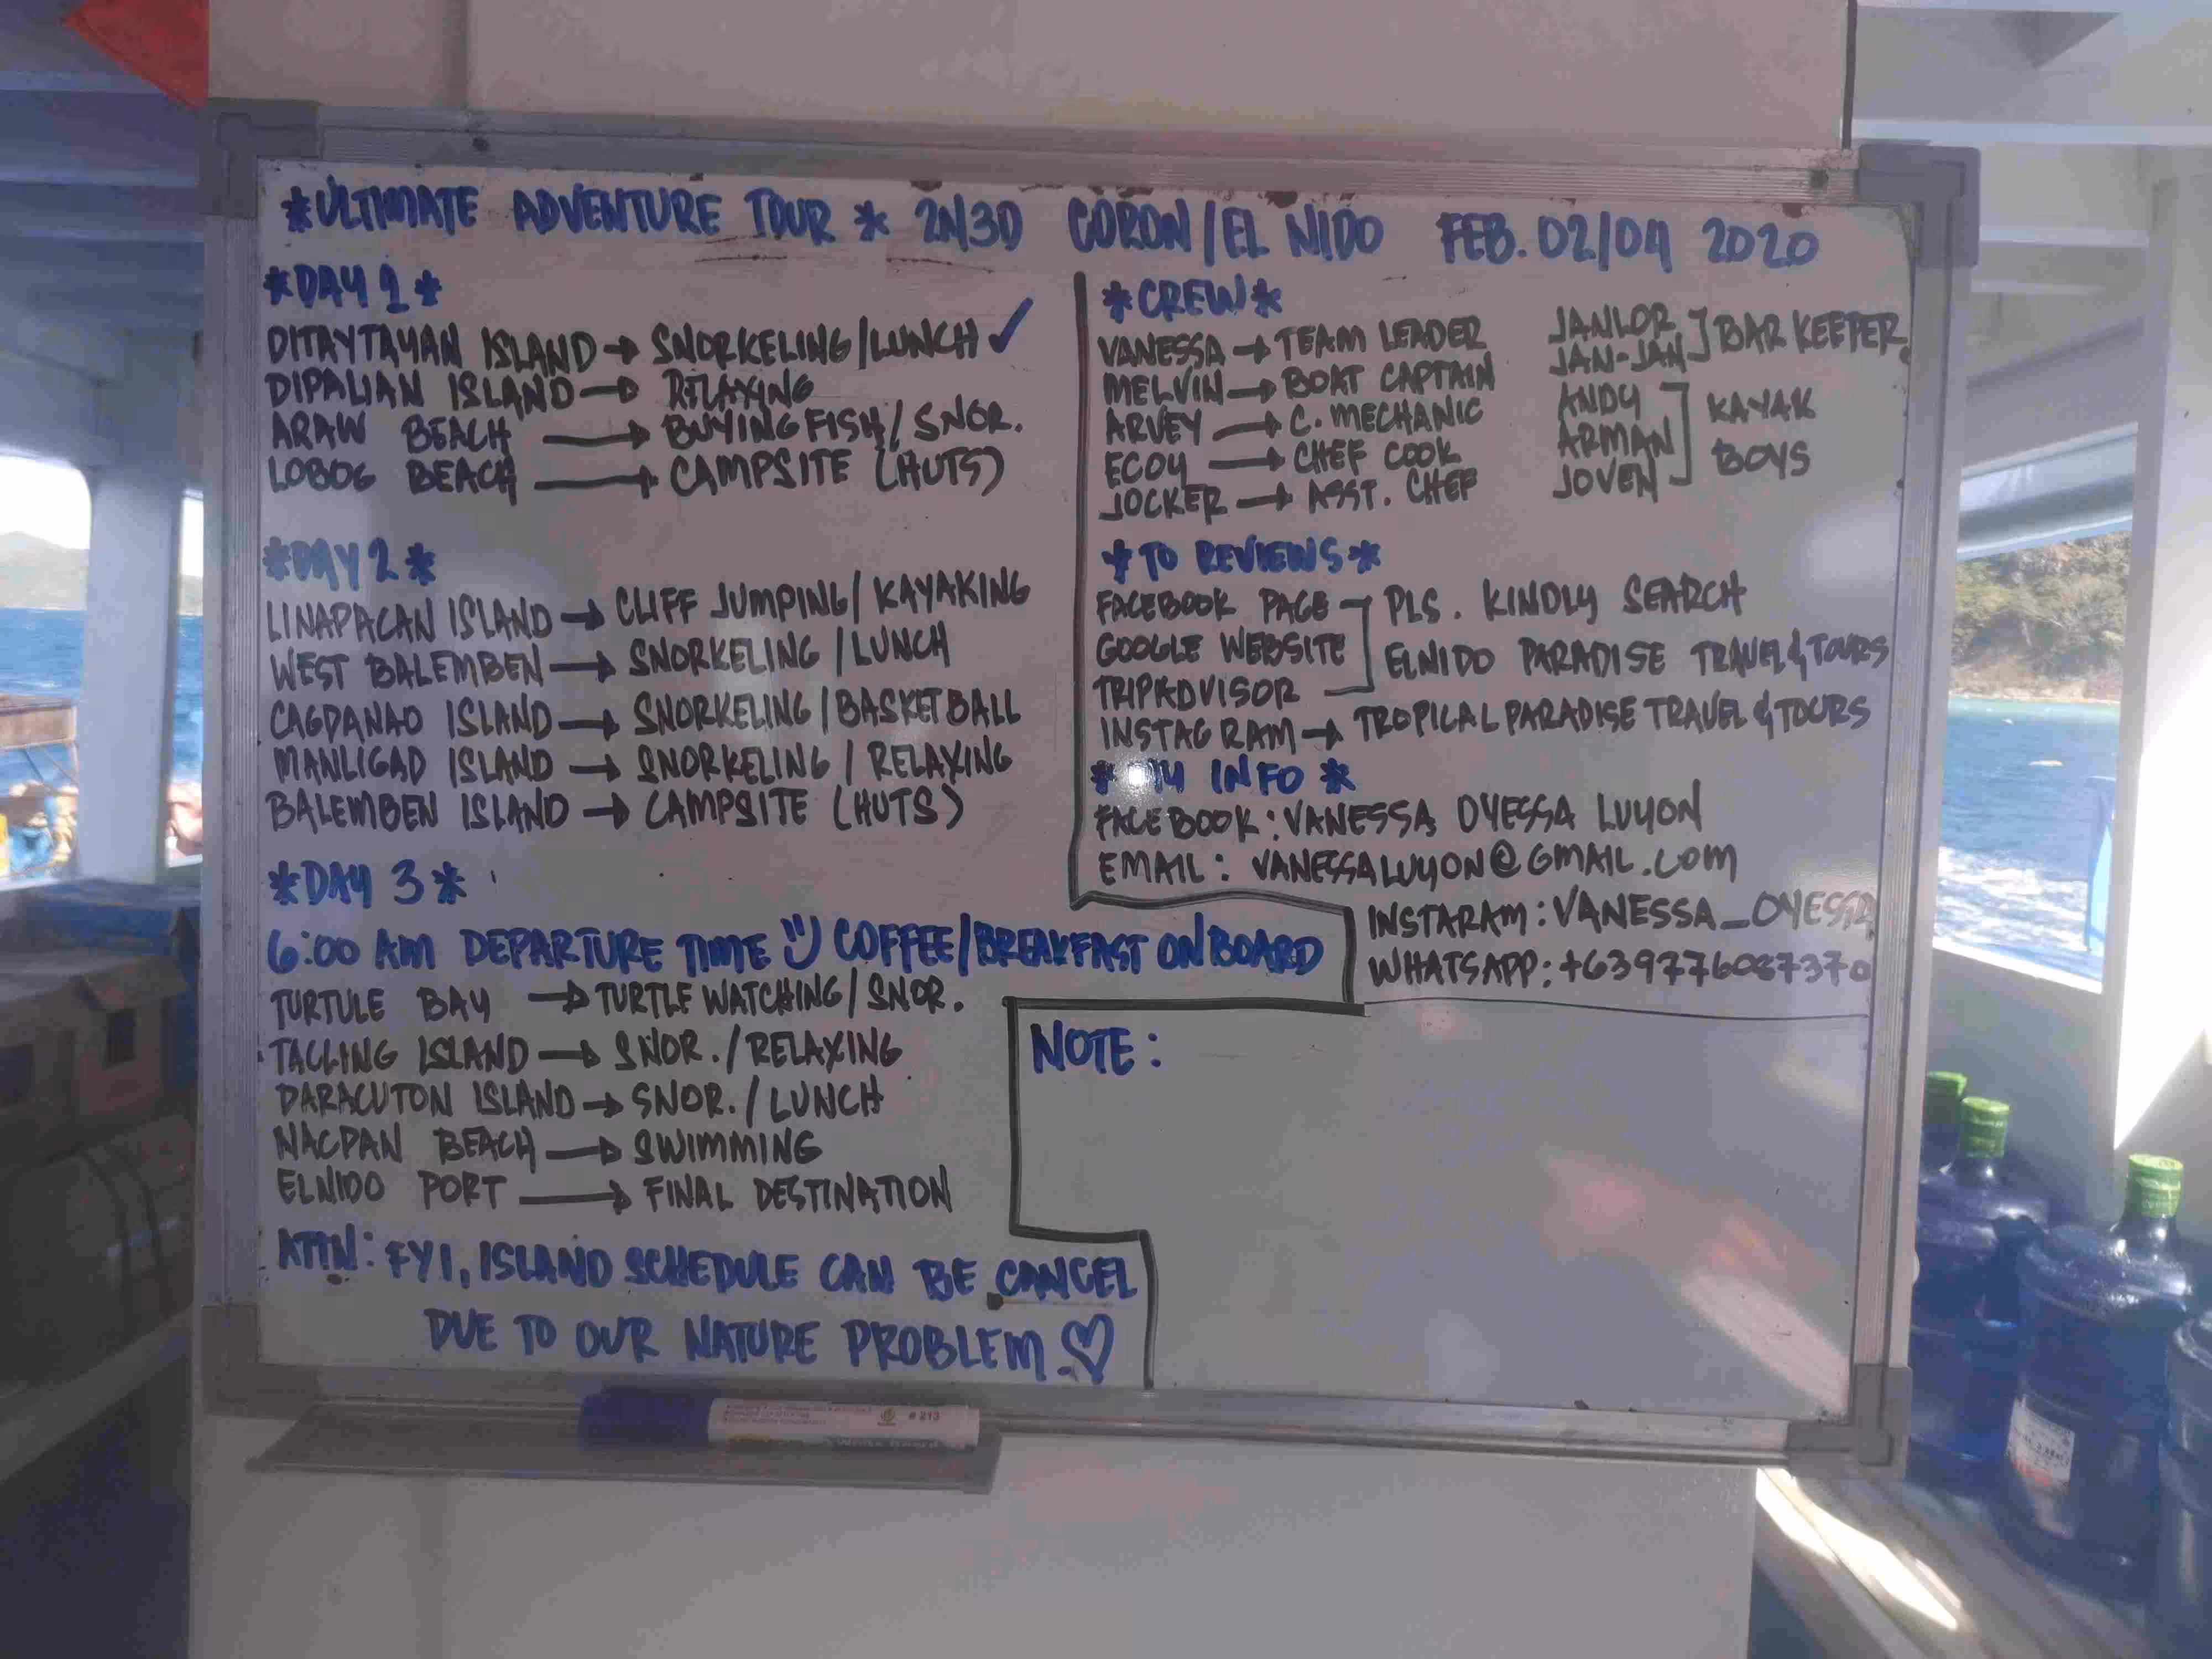 *ULTIMATE ADVENTURE TOUR * 2N/3D CORON/EL NIDO FEB. 02/04 2020
*DAY 1*
DITAYTAYAN ISLAND → SNORKELING/LUNCH ✓
DIPALIAN ISLAND → RELAXING
ARAW BEACH → BUYING FISH/SNOR.
LOBOG BEACH → CAMPSITE (HUTS)
*DAY 2*
LINAPACAN ISLAND → CLIFF JUMPING/KAYAKING
WEST BALEMBEN → SNORKELING/LUNCH
CAGDANAO ISLAND → SNORKELING/BASKETBALL
MANLIGAD ISLAND → SNORKELING/RELAXING
BALEMBEN ISLAND → CAMPSITE (HUTS)
*DAY 3*
6:00 AM DEPARTURE TIME COFFEE/BREAKFAST ON BOARD
TURTULE BAY → TURTLE WATCHING/SNOR.
TACLING ISLAND → SNOR./RELAXING
DARACUTON ISLAND → SNOR./LUNCH
NACPAN BEACH → SWIMMING
ELNIDO PORT → FINAL DESTINATION
ATTN: FYI, ISLAND SCHEDULE CAN BE CANCEL
DUE TO OUR NATURE PROBLEM. ♡
*CREW*
VANESSA → TEAM LEADER
MELVIN → BOAT CAPTAIN
ARVEY → C. MECHANIC
ECOY → CHEF COOK
JOCKER → ASST. CHEF
JANLOR
JAN-JAN ] BAR KEEPER
ANDY
ARMAN ] KAYAK
JOVEN BOYS
*TO REVIEWS*
FACEBOOK PAGE PLS. KINDLY SEARCH
GOOGLE WEBSITE ELNIDO PARADISE TRAVEL & TOURS
TRIPADVISOR
INSTAGRAM → TROPICAL PARADISE TRAVEL & TOURS
* MY INFO *
FACEBOOK: VANESSA OYESSA LUYON
EMAIL: VANESSALUYON@GMAIL.COM
INSTARAM: VANESSA_OYESSA
WHATSAPP: +639776087370
NOTE:
# 213